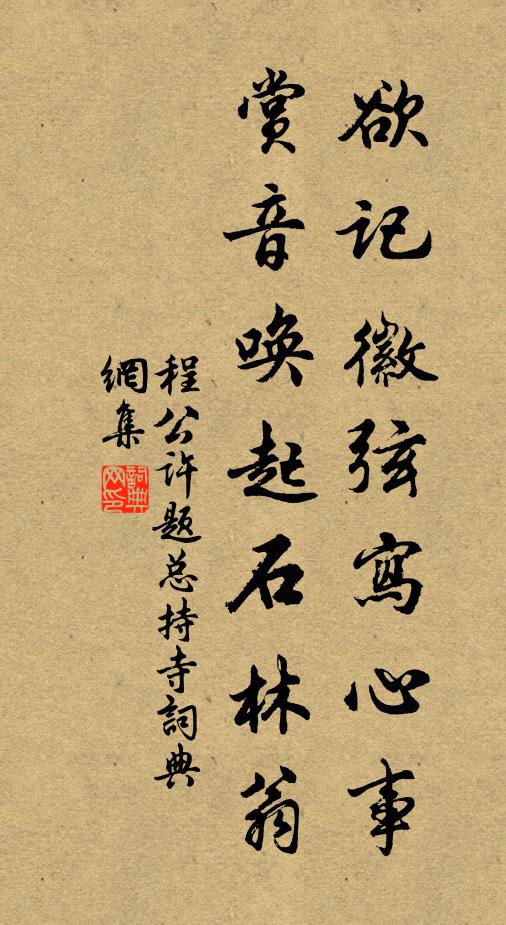 欲记徽弦寫心事
赏音唤起石林翁
程公许题总持寺詞典
網集
詞典网印